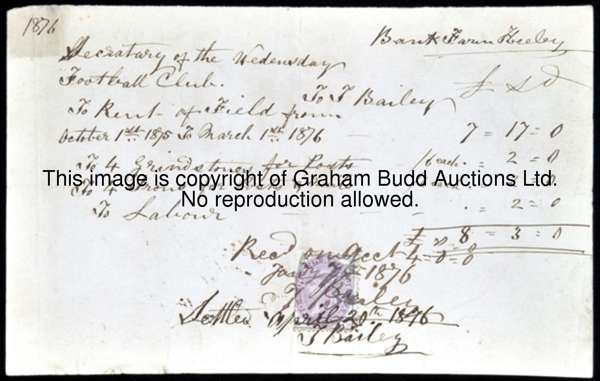 1876
Bank Farm Heeley
Secratary of the Wedensday
Football Club.
To T Bailey
£ s d
To Rent of Field from
October 1st 1875 To March 1st 1876 7 = 17 = 0
To 4 Grindstones for Posts /6 each = 2 = 0
This image is copyright of Graham Budd Auctions Ltd.
No reproduction allowed.
To 4
To Labour 2 = 0
£ 8 = 3 = 0
Recd on acct 4 = 0 = 0
1876
T Bailey
Settled April 20th 1876
T Bailey